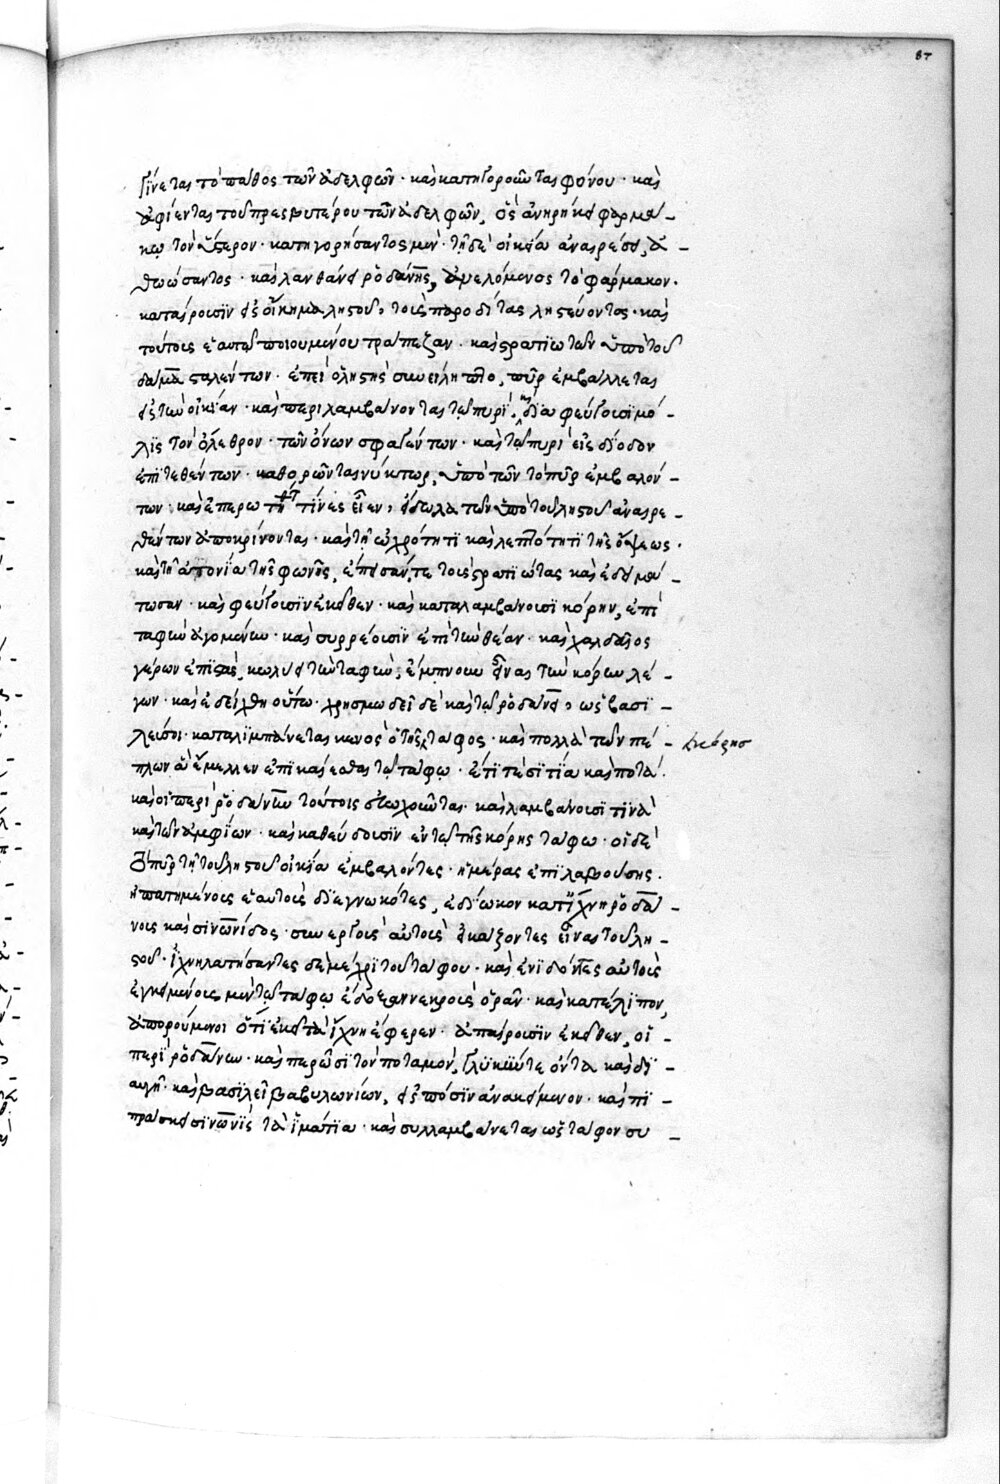 87
γίνεται τὸ πάθος τῶν ἀδελφῶν· καὶ κατηγοροῦνται φόνου· καὶ
ἀφίενται τοῦ πρεσβυτέρου τῶν ἀδελφῶν, ὃς ἀνηρήκει φαρμά-
κῳ τὸν ἕτερον· κατηγορήσαντος μὲν· τῇ δὲ οἰκείᾳ ἀναιρέσει, ἀ-
θωώσαντος· καὶ λανθάνει ῥοδάνης, ἀνελόμενος τὸ φάρμακον·
καταίρουσιν εἰς οἴκημα λῃστοῦ, τοὺς παροδίτας λῃστεύοντος· καὶ
τούτοις ἑαυτῷ ποιουμένου τράπεζαν· καὶ στρατιωτῶν ὑπὸ τοῦ
δάμα σταλέντων· ἐπεὶ ὁ λῃστὴς συνείληπτο, πῦρ ἐμβάλλεται
εἰς τὴν οἰκίαν· καὶ περιλαμβάνονται τῷ πυρί· καὶ διαφεύγουσι μό-
λις τὸν ὄλεθρον· τῶν ὄνων σφαγέντων· καὶ τῷ πυρὶ εἰς δίοδον
ἐπιτεθέντων· καθορῶνται νύκτωρ, ὑπὸ τῶν τὸ πῦρ ἐμβαλόν-
των· καὶ ἐπερωτηθέντες τίνες εἶεν, εἴδωλα τῶν ὑπὸ τοῦ λῃστοῦ ἀναιρε-
θέντων ἀποκρίνονται· καὶ τῇ ὠχρότητι καὶ λεπτότητι τῆς ὄψεως·
καὶ τῇ ἀτονίᾳ τῆς φωνῆς, ἔπεισάν τε τοὺς στρατιώτας καὶ ἐδειμά-
τωσαν· καὶ φεύγουσιν ἐκεῖθεν· καὶ καταλαμβάνουσι κόρην, ἐπὶ
ταφὴν ἀγομένην· καὶ συρρέουσιν ἐπὶ τὴν θέαν· καὶ χαλδαῖος
γέρων ἐπιστὰς, κωλύει τὴν ταφὴν, ἔμπνουν εἶναι τὴν κόρην λέ-
γων· καὶ ἐδείχθη οὕτω· χρησμωδεῖ δὲ καὶ τῷ ῥοδάνει, ὡς βασι-
λεύσοι· καταλιμπάνεται κενὸς ὁ τῆς τάφος· καὶ πολλὰ τῶν πέ-
κόρης
πλων ἃ ἔμελλεν ἐπικαίεσθαι τῷ τάφῳ· ἔτι τε σιτία καὶ ποτά·
καὶ οἱ περὶ ῥοδάνην τούτοις εὐωχοῦνται· καὶ λαμβάνουσί τινα
καὶ τῶν ἀμφίων· καὶ καθεύδουσιν ἐν τῷ τῆς κόρης τάφῳ· οἱ δὲ
πῦρ τῇ τοῦ λῃστοῦ οἰκίᾳ ἐμβαλόντες· ἡμέρας ἐπιλαβούσης·
ἠπατημένους ἑαυτοὺς διεγνωκότες, ἐδίωκον κατ' ἴχνη ῥοδά-
νους καὶ σινωνίδος· συνεργοὺς αὐτοὺς εἰκάζοντες εἶναι τοῦ λῃ-
στοῦ· ἰχνηλατήσαντες δὲ μέχρι τοῦ τάφου· καὶ ἐνιδόντες αὐτοὺς
ἐγκειμένους μὲν τῷ τάφῳ ἔδοξαν νεκροὺς ὁρᾶν· καὶ κατέλιπον,
ἀπορούμενοι ὅτι ἐκεῖ τὰ ἴχνη ἔφερεν· ἀπαίρουσιν ἐκεῖθεν, οἱ
περὶ ῥοδάνην· καὶ περῶσι τὸν ποταμὸν, γλυκύν τε ὄντα καὶ δι-
αυγῆ· καὶ βασιλεῖ βαβυλωνίων, εἰς πόσιν ἀνακείμενον· καὶ πι-
πράσκει σινωνὶς τὰ ἱμάτια· καὶ συλλαμβάνεται ὡς τάφον συ-